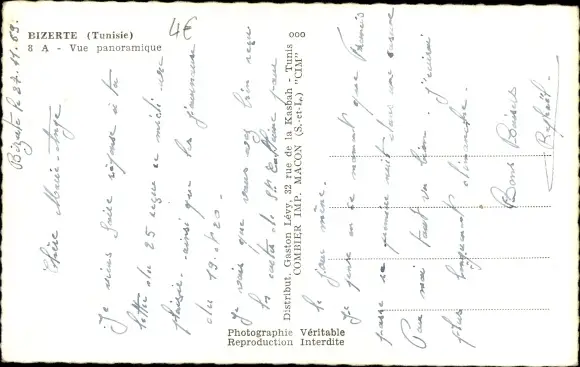 BIZERTE (Tunisie)
8 A - Vue panoramique
4€
ooo
Bizerte le 27.11.59.
Chère Marie-Ange
Je viens faire réponse à ta
lettre du 25 reçue ce midi avec
plaisir ainsi que les
du 19 et 20.
Je vois que vous avez bien reçu
les cartes de Ste Catherine pour
le jour même.
Je pense en ce moment que
passe sa
Pour moi tout va bien.
plus dimanche.
Bons Baisers
Raphaël.
Distribut. Gaston Lévy, 32 rue de la Kasbah - Tunis
COMBIER IMP. MACON (S.-et-L.) "CIM"
Photographie Véritable
Reproduction Interdite